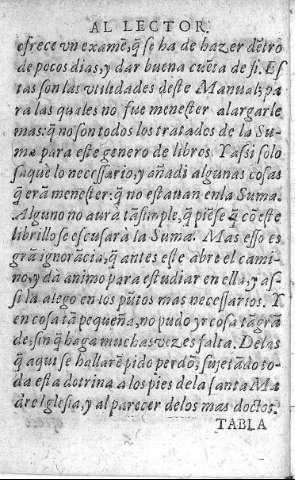 AL LECTOR.
ofrece vn examẽ, q̃ se ha de hazer dẽtro
de pocos dias, y dar buena cuẽta de si. Es
tas son las vtilidades deste Manual; pa
ra las quales no fue menester alargarle
mas: q̃ no son todos los tratados de la Su-
ma para este genero de libros. Y assi solo
saque lo necessario, y añadi algunas cosas
q̃ erã menester: q̃ no estauan en la Suma.
Alguno no aura tã simple, q̃ piẽse q̃ cõ este
librillo se escusara la Suma. Mas esso es
grã ignorãcia, q̃ antes este abre el cami-
no, y da animo para estudiar en ella, y as-
si la alego en los pũtos mas necessarios. Y
en cosa tã pequeña, no pudo yr cosa tã grã
de, sin q̃ haga muchas vezes falta. De las
q̃ aqui se hallarẽ pido perdõ, sujetãdo to-
da esta dotrina a los pies de la santa Ma
dre Iglesia, y al parecer de los mas doctos.
TABLA